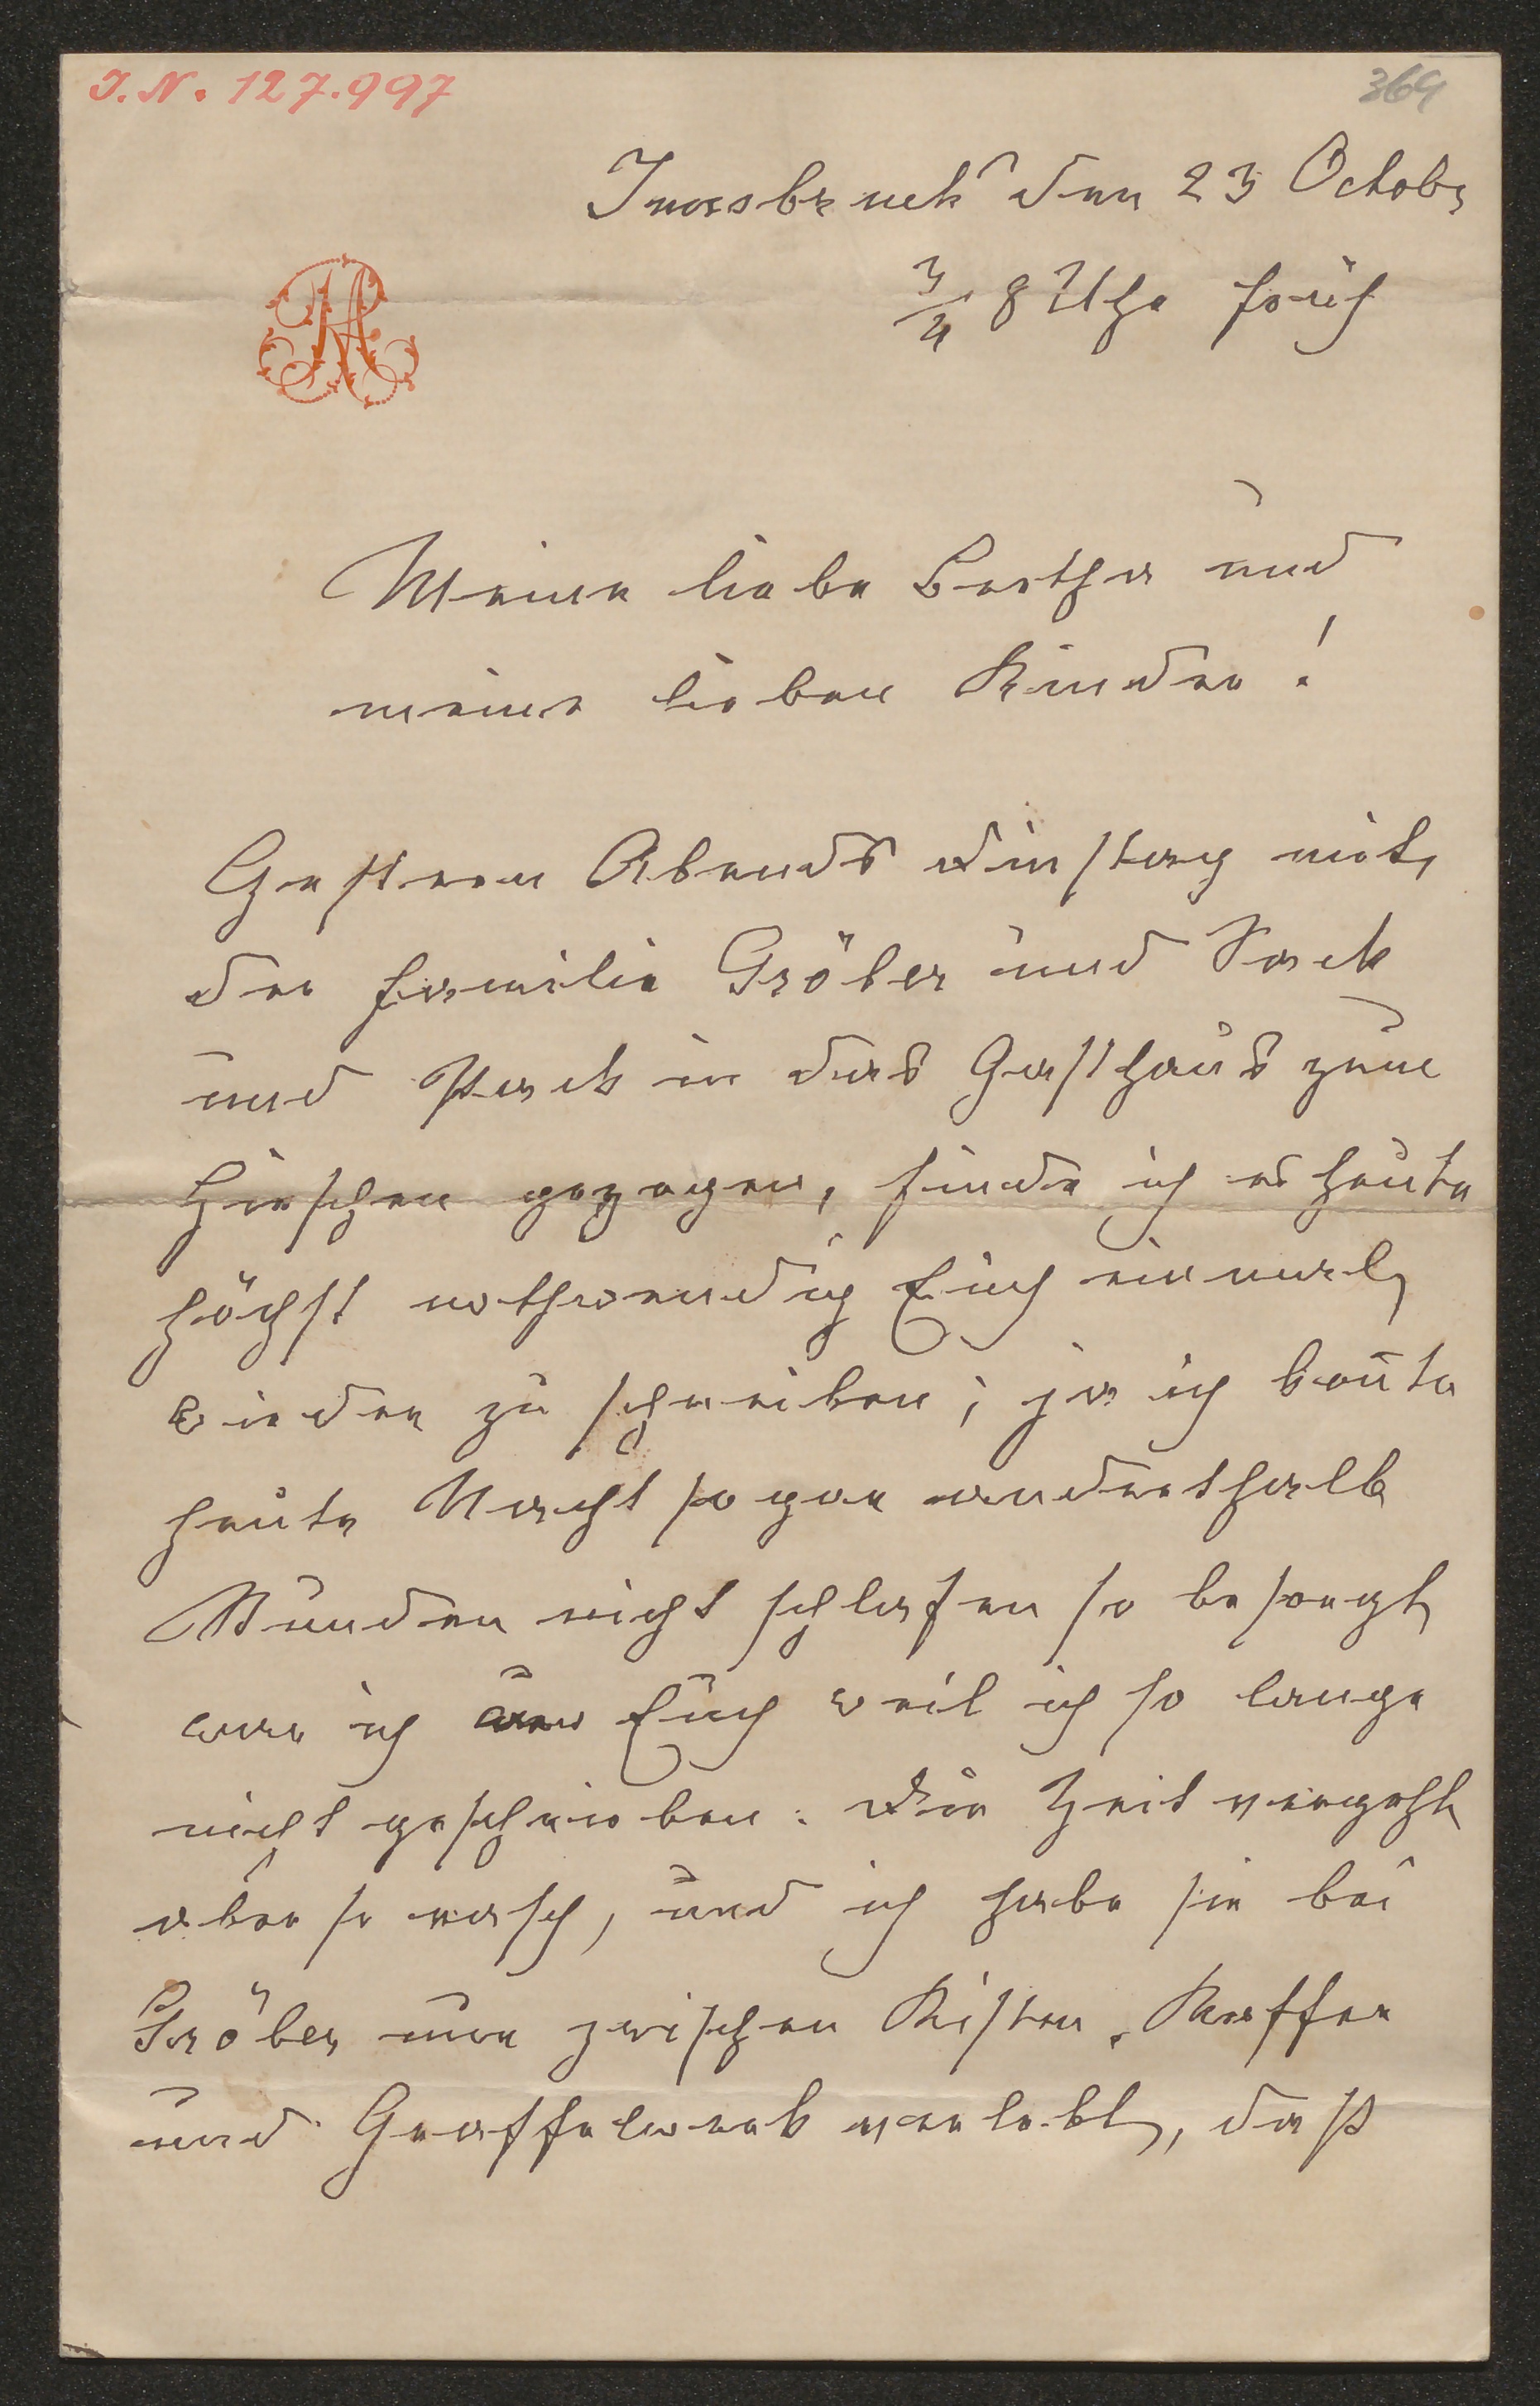 I.N. 127.997
369
Innsbruck den 23 Octob
3/4 8 Uhr früh
Meine liebe Bertha und
meine lieben Kinder!
Gestern Abends Dinstag mit
der Familie Gröber und Sack
und Pack in das Gasthaus zum
Hirschen gezogen, finde ich es heute
höchst nothwendig Euch einmal
wieder zu schreiben; ja ich konnte
heute Nacht sogar anderthalb
Stunden nicht schlafen so besorgt
war ich um Euch weil ich so lange
nicht geschrieben. Die Zeit vergeht
aber so rasch, und ich habe sie bei
Gröber nur zwischen Kisten, Koffer
und Graffelwerk verlebt, daß